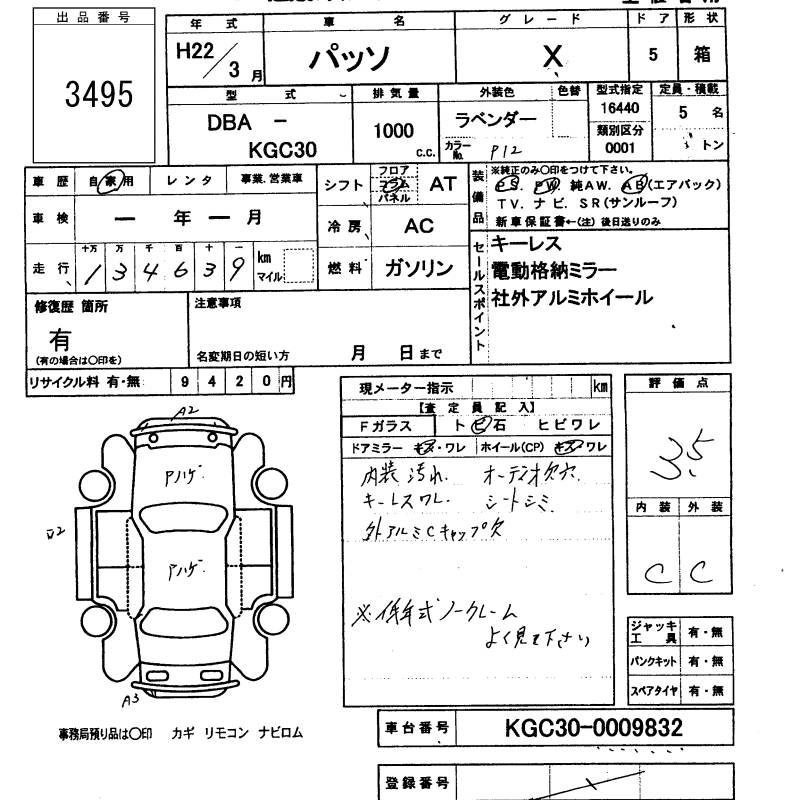 出品番号
3495
年式 車名 グレード ドア 形状
H22/3月 パッソ X 5 箱
型式 排気量 外装色 色替 型式指定 定員・積載
DBA - 1000 c.c. ラベンダー 16440 5 名
KGC30 カラーNo. P12 類別区分 0001 トン
車歴 自家用 レンタ 事業.営業車
車検 ー 年 ー 月
走行 十万 万 千 百 十 一
1 3 4 6 3 9 km マイル
シフト フロア コラム パネル AT
冷房 AC
燃料 ガソリン
装備品
※純正のみ〇印をつけて下さい。
PS. PW 純AW. AB(エアバック)
TV. ナビ. SR(サンルーフ)
新車保証書←(注) 後日送りのみ
セールスポイント
キーレス
電動格納ミラー
社外アルミホイール
修復歴 箇所
有
(有の場合は〇印を)
注意事項
名変期日の短い方 月 日まで
リサイクル料 有・無 9 4 2 0 円
現メーター指示 km
【査定員記入】
Fガラス ト ビ 石 ヒビワレ
ドアミラー キズ・ワレ ホイール(CP) キズ・ワレ
内装 汚れ. オーディオ欠穴.
キーレスワレ. シートシミ.
外アルミCキャップ欠
※低年式ノークレーム
よく見て下さい
評価点
3.5
内装 外装
C C
ジャッキ 工具 有・無
パンクキット 有・無
スペアタイヤ 有・無
A2
アハゲ.
アハゲ.
A3
事務局預り品は〇印 カギ リモコン ナビロム
車台番号 KGC30-0009832
登録番号